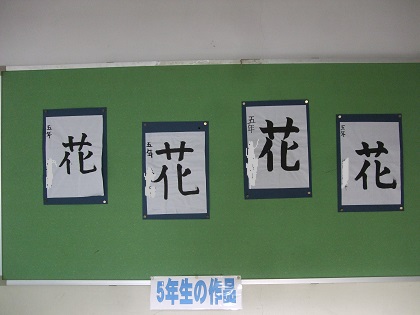 五年
花
五年
花
五年
花
五年
花
5年生の作品